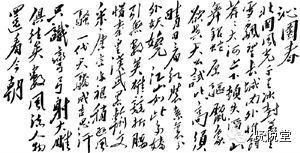 沁园春
北国风光千里冰封万里
雪飘望长城内外惟余莽
莽大河上下顿失滔滔山
舞银蛇原驰腊象
欲与天公试比高须
晴日看红装素裹分
外妖娆江山如此多娇
引无数英雄竞折腰
惜秦皇汉武略输文
采唐宗宋祖稍逊风
骚一代天骄成吉思汗
只识弯弓射大雕
俱往矣数风流人物
还看今朝